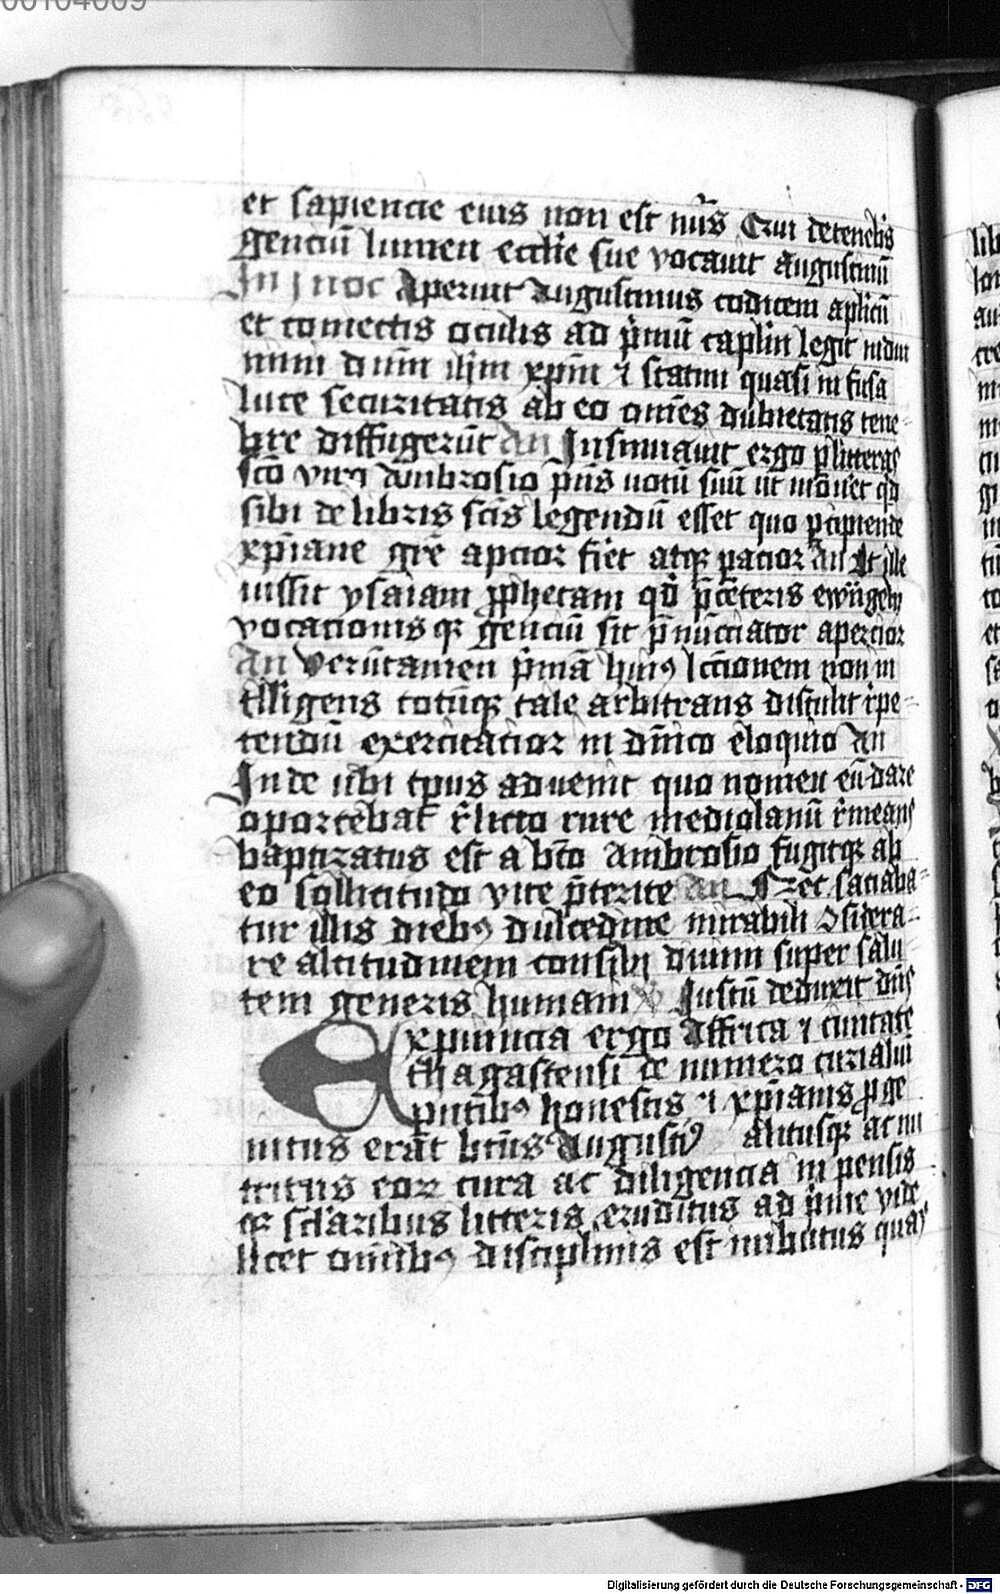 00104009
et sapiencie eius non est nu̅s Qui de tenebis
genciu̅ lumen eccli̅e sue vocauit augustinu̅
In j noc Aperuit augustinus codicem aplicu̅
et coniectis oculis ad p̅mu̅ caplm̅ legit indui
mini dn̅m ih̅m xp̅m ⁊ statim quasi infusa
luce securitatis ab eo om̅es dubietatis tene-
bre diffugeru̅t An Insinuauit ergo p litteras
sc̅o viro Ambrosio p̅ns uotu̅ suu̅ ut mone̅et qd̅
sibi de libris sc̅is legendu̅ esset quo p̅cipiende
xp̅iane gr̅e apcior fi̅et atqꝫ pacior An At ille
iussit ysaiam ꝓphetam qd̅ p̅ ceteris ewu̅gelij
vocationisqꝫ genciu̅ sit p̅nu̅cciator apercior
An Veru̅tamen p̅ma̅ huiꝰ lcc̅ionem non in
telligens totu̅qꝫ tale arbitrans distulit r̅pe-
tendu̅ exercitacior in dn̅ico eloquio An
Inde ubi tp̅us aduenit quo nomen eu̅ dare
oportebat r̅licto rure mediolanu̅ r̅means
baptizatus est a bt̅o Ambrosio fugitqꝫ ab
eo sollicitudo vite p̅terite An Nec saciaba-
tur illis diebꝰ dulcedine mirabili ↄsidera-
re altitudinem consilij diuini super salu
tem generis humani Iustu̅ deduxit dn̅s
Ex puincia ergo Affrica ⁊ ciuitate
thagastensi de numero curialiu̅
pntibꝰ honestis ⁊ xp̅ianis ꝓge
nitus erat bt̅us Augustiꝰ alitusqꝫ ac nu
tritus eoꝝ cura ac diligencia inpensis
qꝫ scl̅aribus litteris eruditus ad p̅me vide
licet om̅ibꝰ disciplinis est inbutus quas
Digitalisierung gefördert durch die Deutsche Forschungsgemeinschaft - DFG